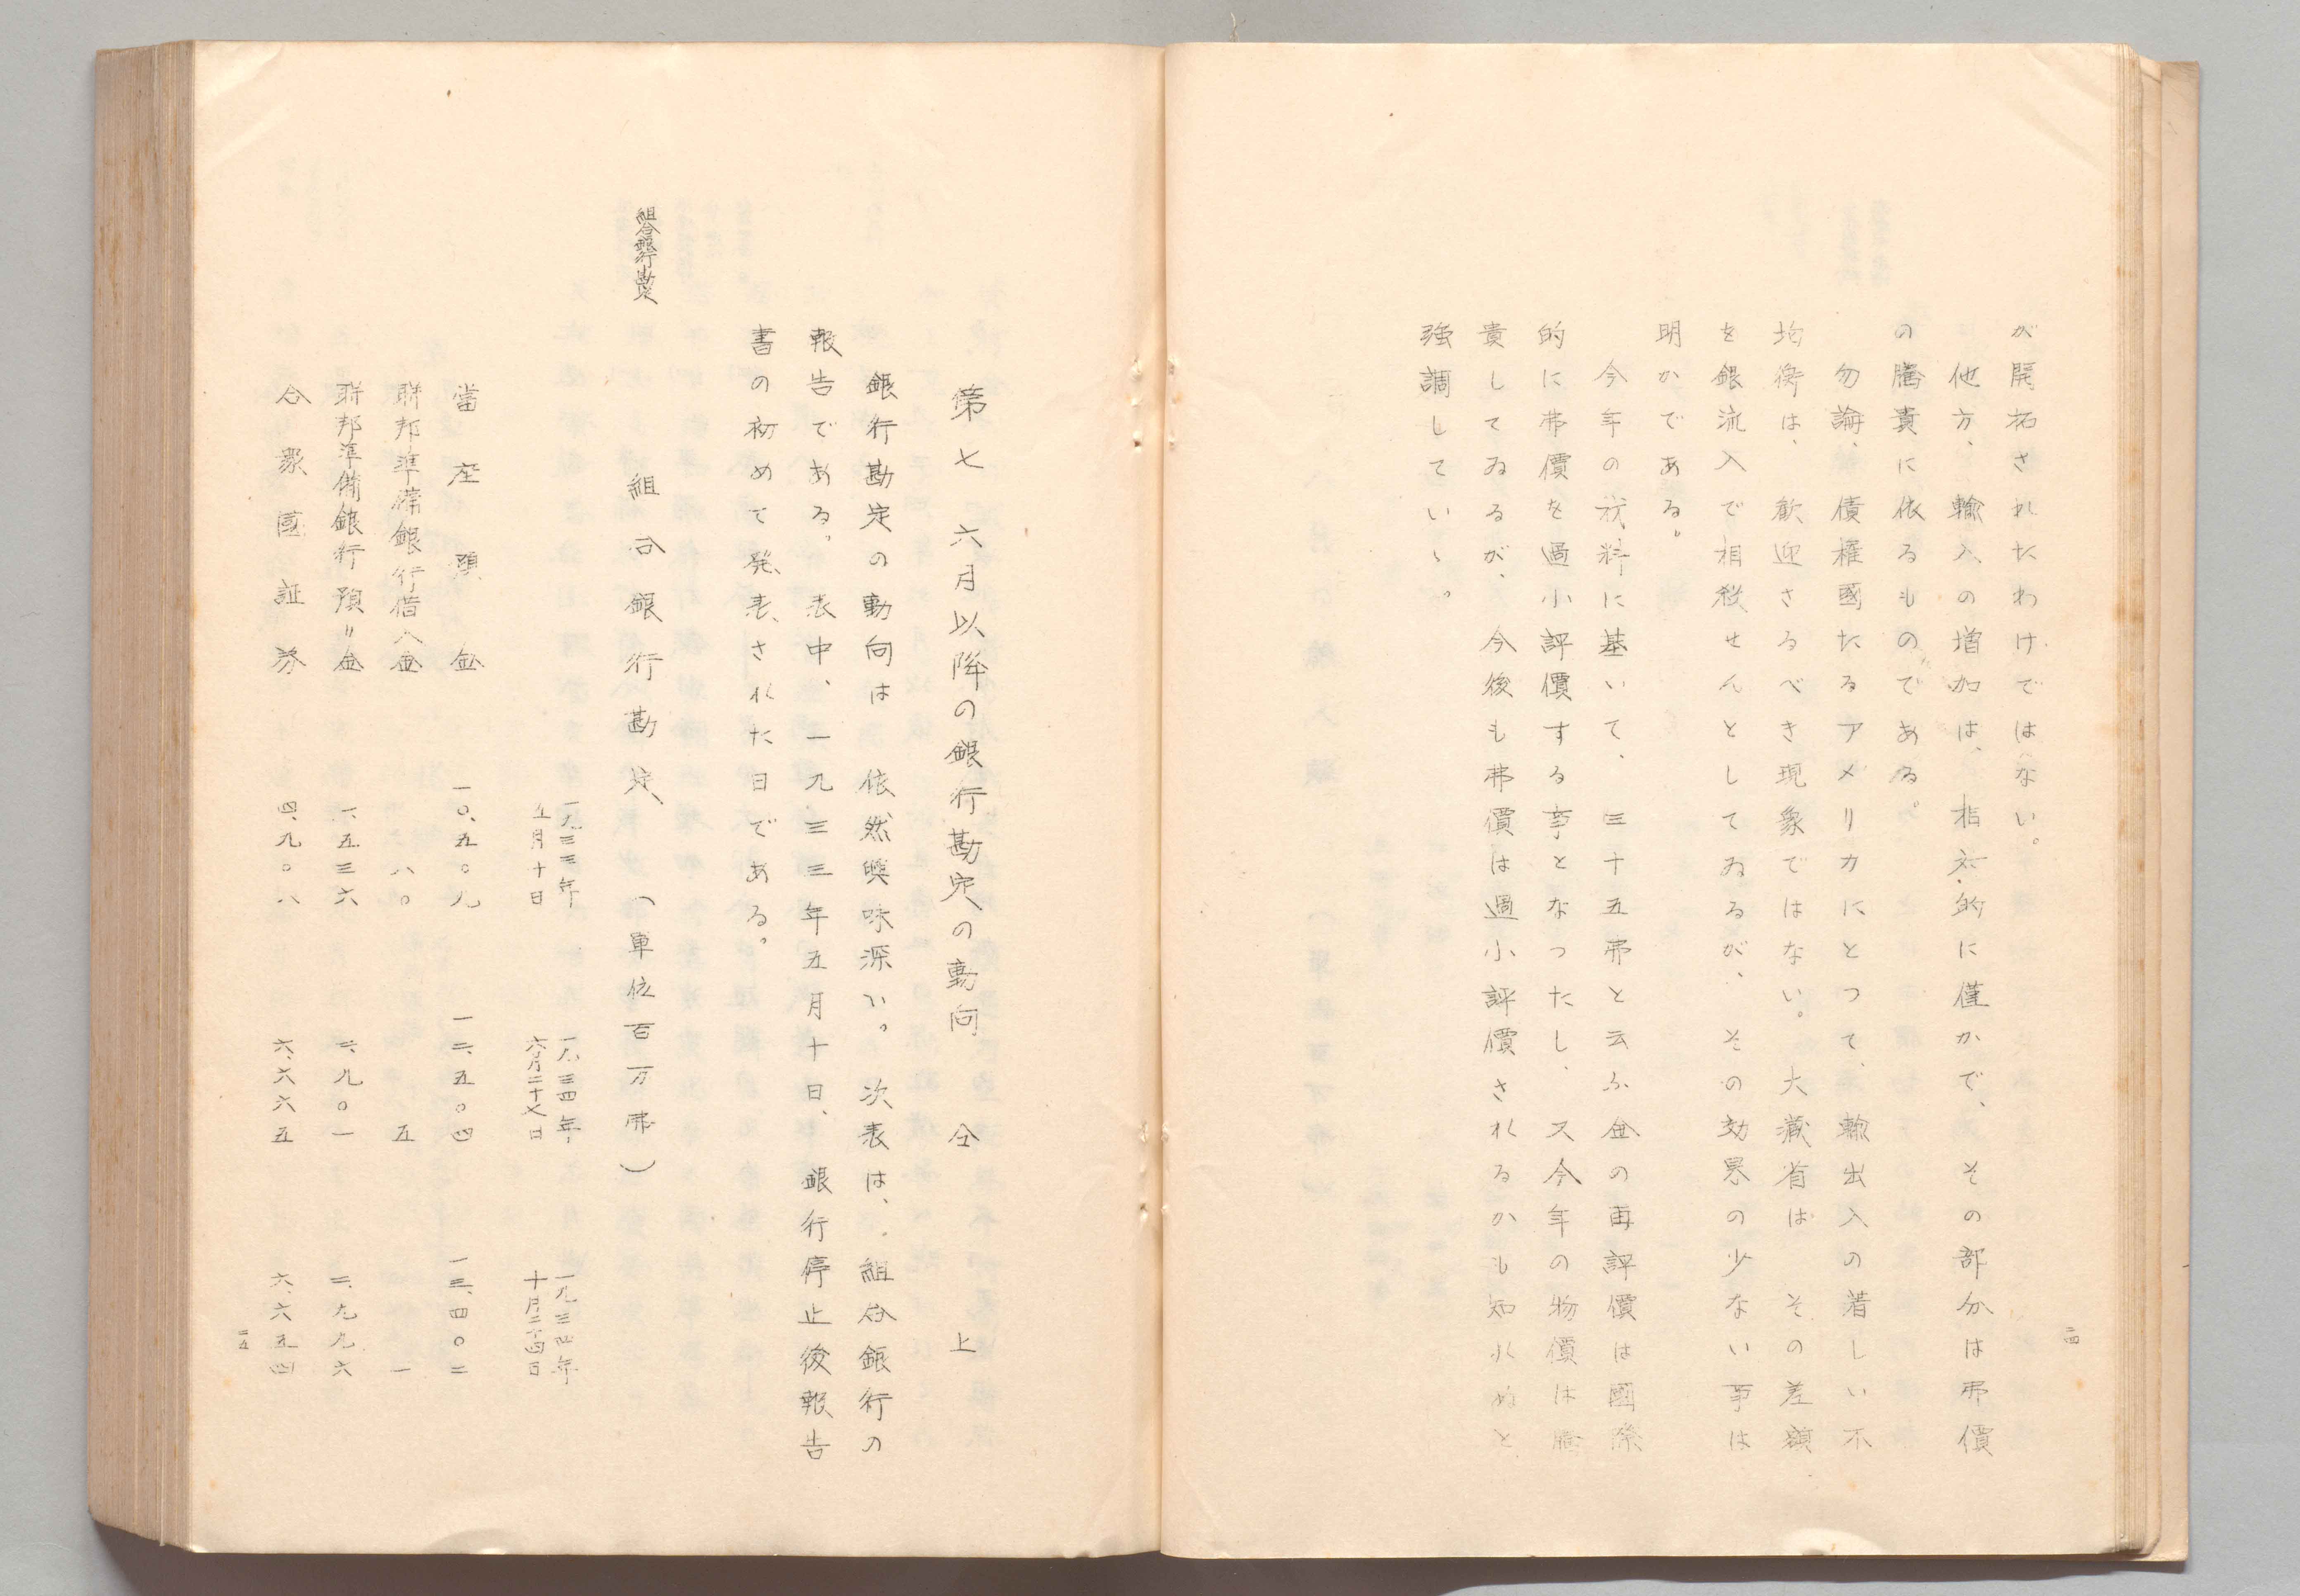 が開拓されたわけではない。
他方、輸入の増加は、相対的に僅かで、その部分は弗價
の騰貴に依るものである。
勿論、債権國たるアメリカにとつて、輸出入の著しい不
均衡は、歓迎さるべき現象ではない。大藏省は その差額
を銀流入で相殺せんとしてゐるが、その効果の少ない事は
明かである。
今年の材料に基いて、三十五弗と云ふ金の再評價は國際
的に弗價を過小評價する事となつたし、又今年の物價は騰
貴してゐるが、今後も弗價は過小評價されるかも知れぬと
強調していゝ。
二四
第七 六月以降の銀行勘定の動向 仝上
銀行勘定の動向は 依然興味深い。次表は、組合銀行の
報告である。表中、一九三三年五月十日、銀行停止後報告
書の初めて発表された日である。
組合銀行勘定
組合銀行勘定 (單位百万弗)
一九三三年五月十日 一九三四年六月二十七日 一九三四年十月二十四日
當座預金 一〇、五〇九 一二、五〇四 一三、四〇二
聯邦準備銀行借入金 八〇 五 一
聯邦準備銀行預リ金 一、五三六 二、九〇一 二、九九六
合衆國証券 四、九〇八 六、六六五 六、六五四
二五